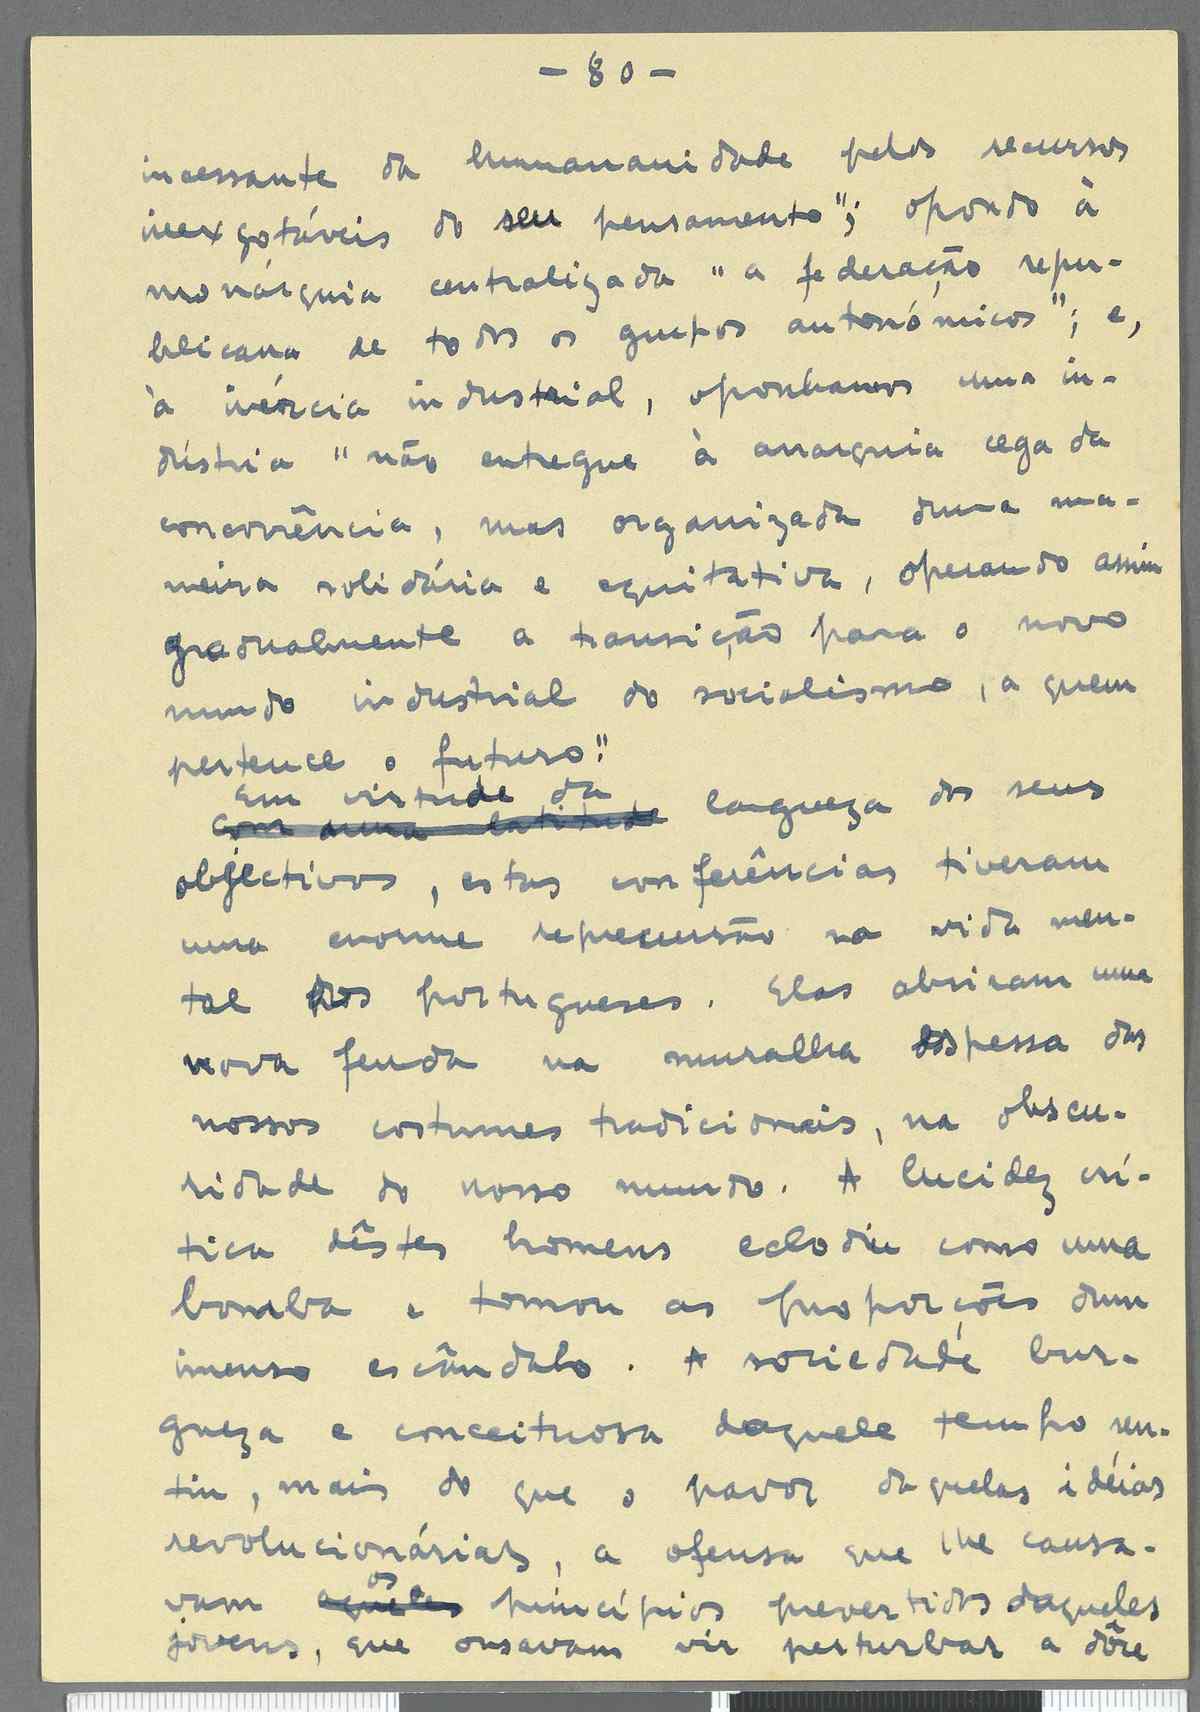 - 80 -
incessante da humananidade pelos recursos
inexgotáveis do seu pensamento"; opondo à
monárquia centralizada "a federação repu-
blicana de todos os grupos autonómicos"; e,
à inércia industrial, oponhamos uma in-
dústria "não entregue à anarquia cega da
concorrência, mas organizada duma ma-
neira solidária e equitativa, operando assim
gradualmente a transição para o novo
mundo industrial do socialismo, a quem
pertence o futuro".
Em virtude da
com uma latitude largueza dos seus
objectivos, estas conferências tiveram
uma enorme reprecursão na vida men-
tal dos portugueses. Elas abriram uma
nova fenda na muralha espessa dos
nossos costumes tradicionais, na obscu-
ridade do nosso mundo. A lucidez crí-
tica dêstes homens eclodiu como uma
bomba e tomou as proporções dum
imenso escândalo. A sociedade bur-
gueza e conceituosa daquele tempo sen-
tiu, mais do que o pavor daquelas idéias
revolucionárias, a ofensa que lhe causa-
os
vam aquêles princípios prevertidos daqueles
jovens, que ousavam vir perturbar a dôce